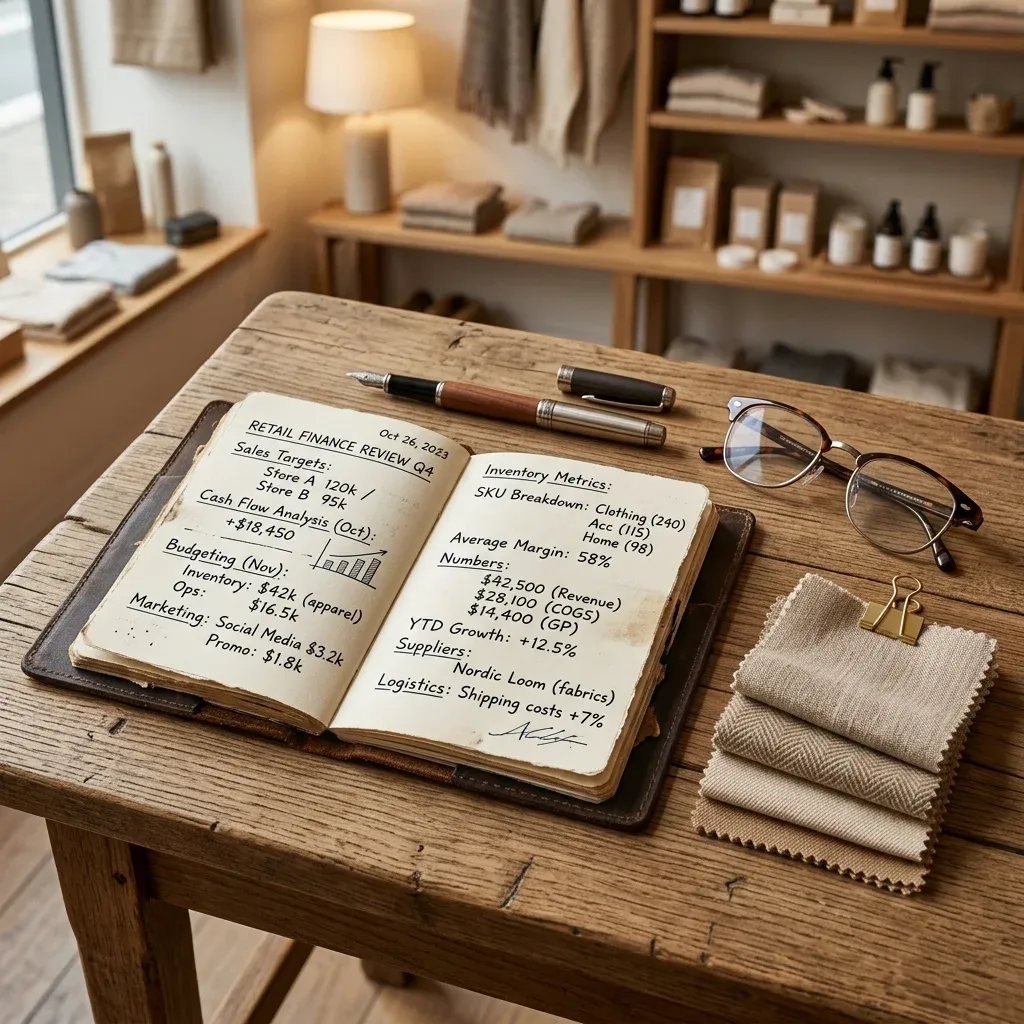 Oct 26, 2023
RETAIL FINANCE REVIEW Q4
Sales Targets:
Store A 120k /
Store B 95k
Cash Flow Analysis (Oct):
+$18,450
Budgeting (Nov):
Inventory: $42k (apparel)
Ops: $16.5k
Marketing: Social Media $3.2k
Promo: $1.8k
Inventory Metrics:
SKU Breakdown: Clothing (240)
Acc (115)
Home (98)
Average Margin: 58%
Numbers:
$42,500 (Revenue)
$28,100 (COGS)
$14,400 (GP)
YTD Growth: +12.5%
Suppliers:
Nordic Loom (fabrics)
Logistics: Shipping costs +7%